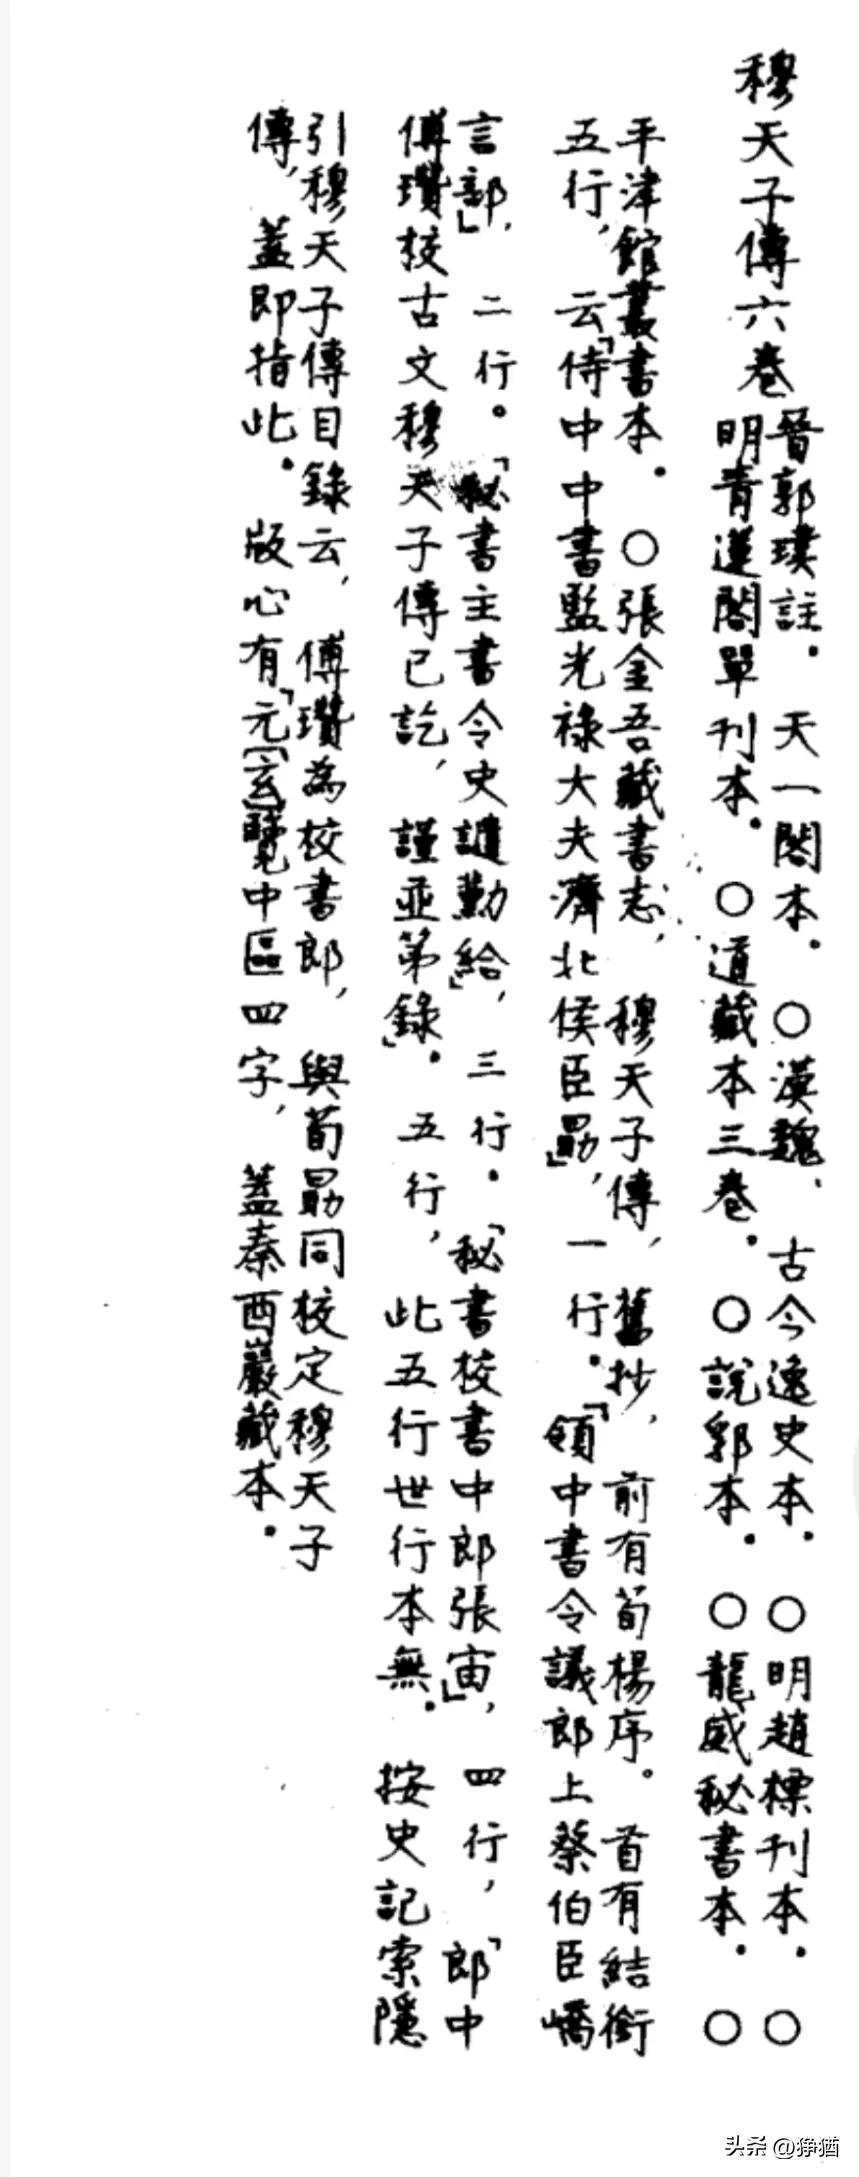 穆天子傳六卷
晉郭璞註。天一閣本。○漢魏、古今逸史本。○明趙標刊本。○
明青蓮閣單刊本。○道藏本三卷。○說郛本。○龍威秘書本。○
平津館叢書本。○張金吾藏書志，穆天子傳，舊抄，前有荀楊序。首有結銜
五行，云「侍中中書監光祿大夫濟北侯臣勗」，一行。「領中書令議郎上蔡伯臣嶠
言部」，二行。「秘書主書令史譴勳給」，三行。「秘書校書中郎張宙」，四行，「郎中
傅瓚校古文穆天子傳已訖，謹並第錄」。五行，此五行世行本無。按史記索隱
引穆天子傳目錄云，傅瓚為校書郎，與荀勗同校定穆天子
傳，蓋即指此。版心有「元[玄]覽中區」四字，蓋秦酉巖藏本。
头条 @狰猶